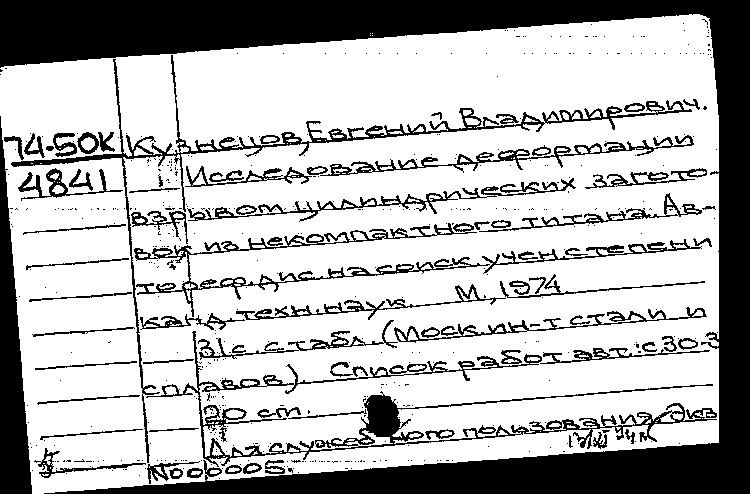 74-50К Кузнецов, Евгений Владимирович.
4841 Исследование деформации
взрывом цилиндрических загото-
вок из некомпактного титана. Ав-
тореф. дис. на соиск. учен. степени
канд. техн. наук. М., 1974
31 с. с табл. (Моск. ин-т стали и
сплавов). Список работ авт.: с. 30-3
20 см.
Для служебного пользования. Экз
№00005.